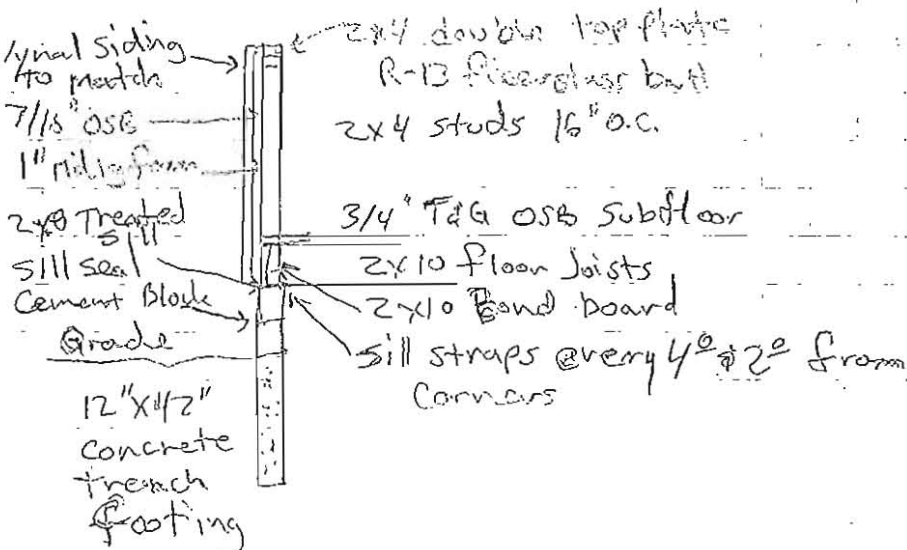 Vynal Siding
to match
7/16" OSB
1" rigid foam
2x8 Treated
sill
sill seal
Cement Block
Grade
12"x42"
concrete
trench
footing
2x4 double top plate
R-13 fiberglass batt
2x4 studs 16" O.C.
3/4" T&G OSB Subfloor
2x10 floor Joists
2x10 Bond board
sill straps every 4° & 2° from
Corners